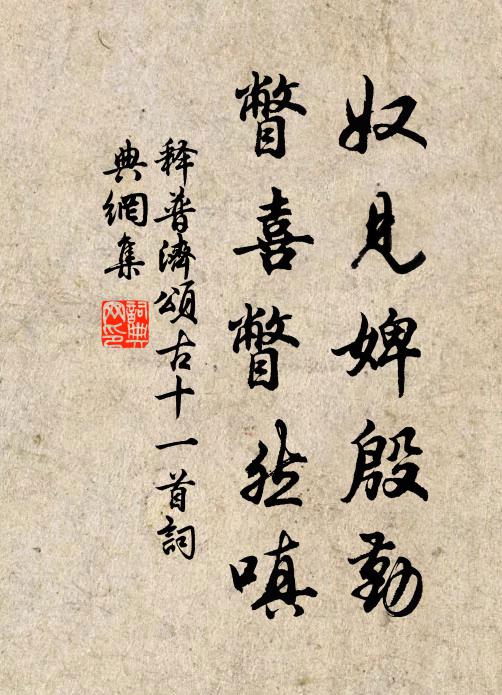 奴見婢殷勤
瞥喜瞥然嗔
释普濟頌古十一首詞
典網集
詞典
网印